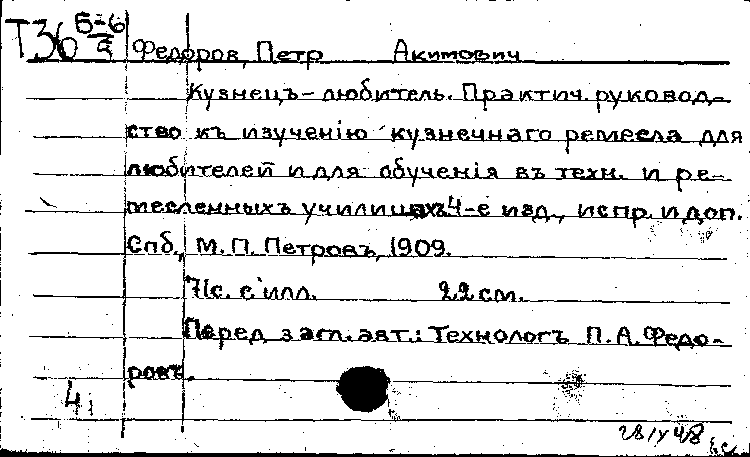 Т36 Б-6/2
Федоров, Петр Акимович
Кузнецъ-любитель. Практич. руковод-
ство къ изученію кузнечнаго ремесла для
любителей и для обученія въ техн. и ре-
месленныхъ училищахъ 4-е изд., испр. и доп.
Спб., М. П. Петровъ, 1909.
71с. с илл. 22 см.
Перед загл. авт.: Технологъ П. А. Федо-
ровъ.
4
28/IV 48